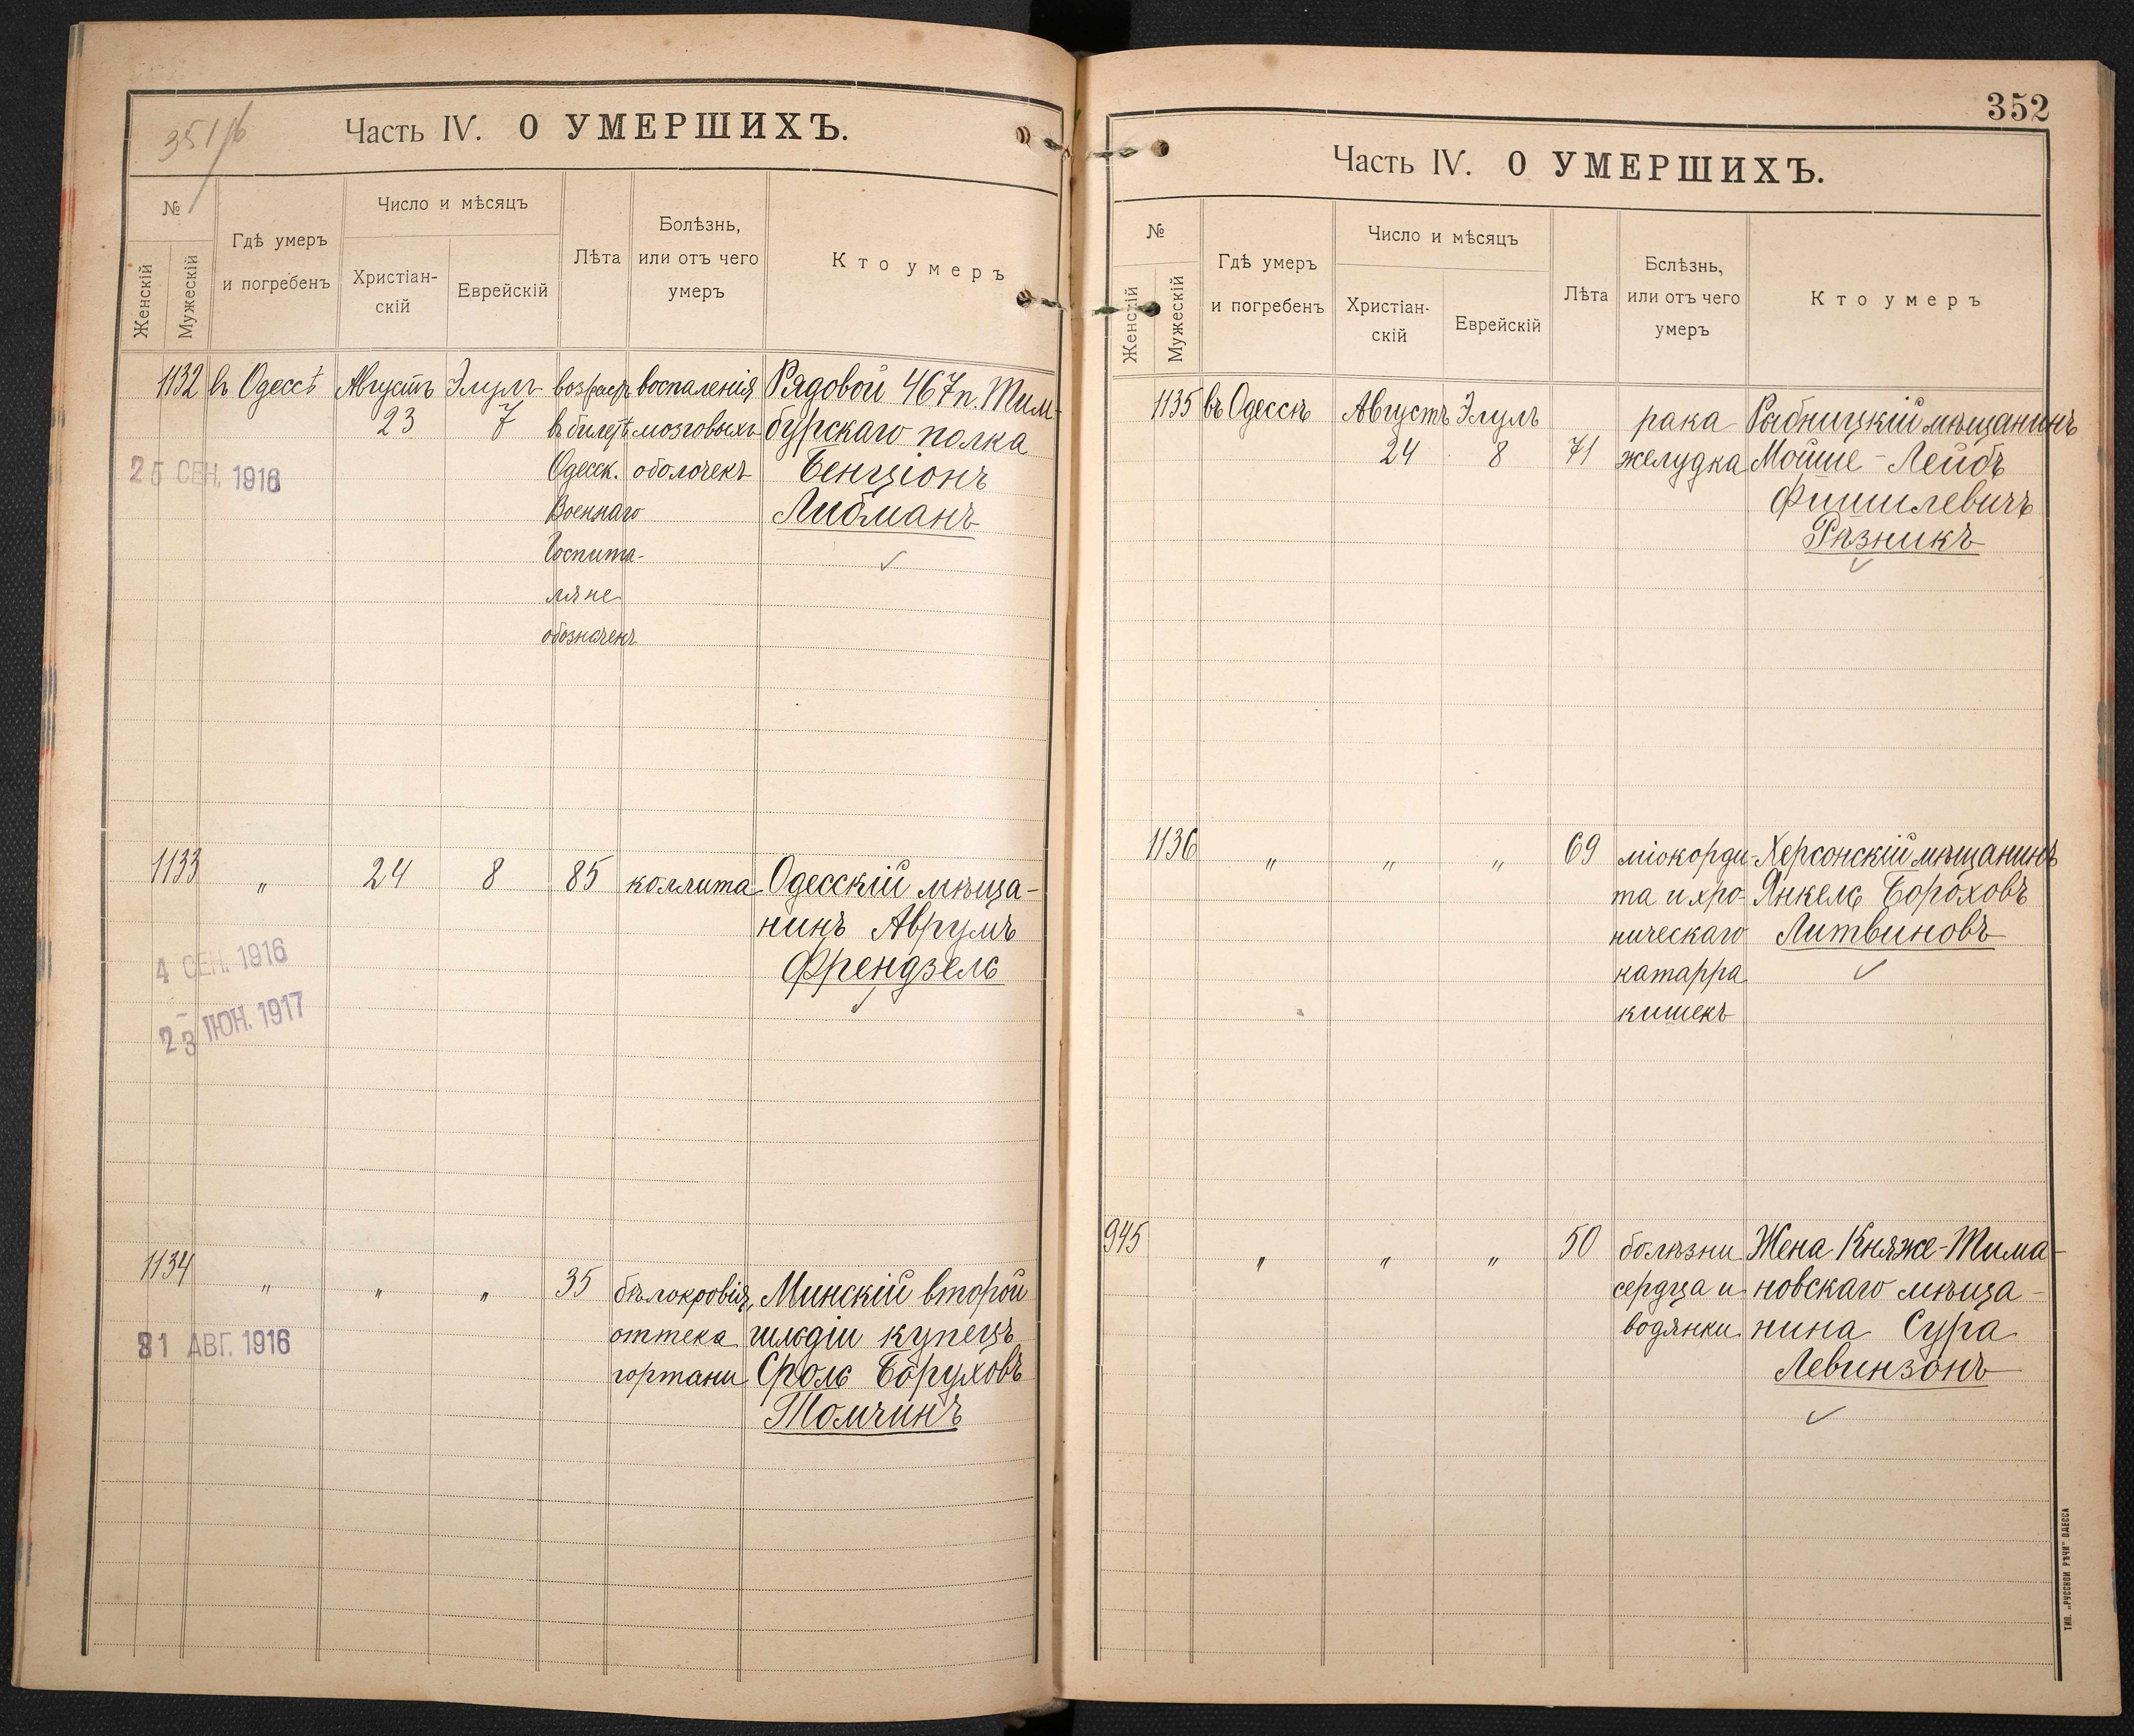 351/б
Часть IV. О УМЕРШИХЪ.
№
Женскій
Мужескій
Гдѣ умеръ
и погребенъ
Число и мѣсяцъ
Христіан-
скій
Еврейскій
Лѣта
Болѣзнь,
или отъ чего
умеръ
Кто умеръ
1132 въ Одессѣ Августъ 23 Элулъ 7
возрастъ
въ билетѣ
Одесск.
Военнаго
Госпита-
ля не
обозначенъ
воспаленія
мозговыхъ
оболочекъ
Рядовой 467 п. Тим-
бурскаго полка
Бенціонъ
Либманъ
25 СЕН. 1916
1133 " 24 8 85 коллита
Одесскій мѣща-
нинъ Аврумъ
Френдзель
4 СЕН. 1916
23 ІЮН. 1917
1134 " " " 35
бѣлокровія,
оттека
гортани
Минскій второй
гильдіи купецъ
Сроль Боруховъ
Томчинъ
31 АВГ. 1916
352
Часть IV. О УМЕРШИХЪ.
№
Женскій
Мужескій
Гдѣ умеръ
и погребенъ
Число и мѣсяцъ
Христіан-
скій
Еврейскій
Лѣта
Бслѣзнь,
или отъ чего
умеръ
Кто умеръ
1135 въ Одессѣ Августъ 24 Элулъ 8 71
рака
желудка
Рыбницкій мѣщанинъ
Мойше-Лейбъ
Фишилевичъ
Рѣзникъ
1136 " " " 69
міокорди-
та и хро-
ническаго
катарра
кишекъ
Херсонскій мѣщанинъ
Янкель Бороховъ
Литвиновъ
945 " " " 50
болѣзни
сердца и
водянки
Жена Княже-Тима-
новскаго мѣща-
нина Сура
Левинзонъ
ТИП. „РУССКОЙ РѢЧИ" ОДЕССА